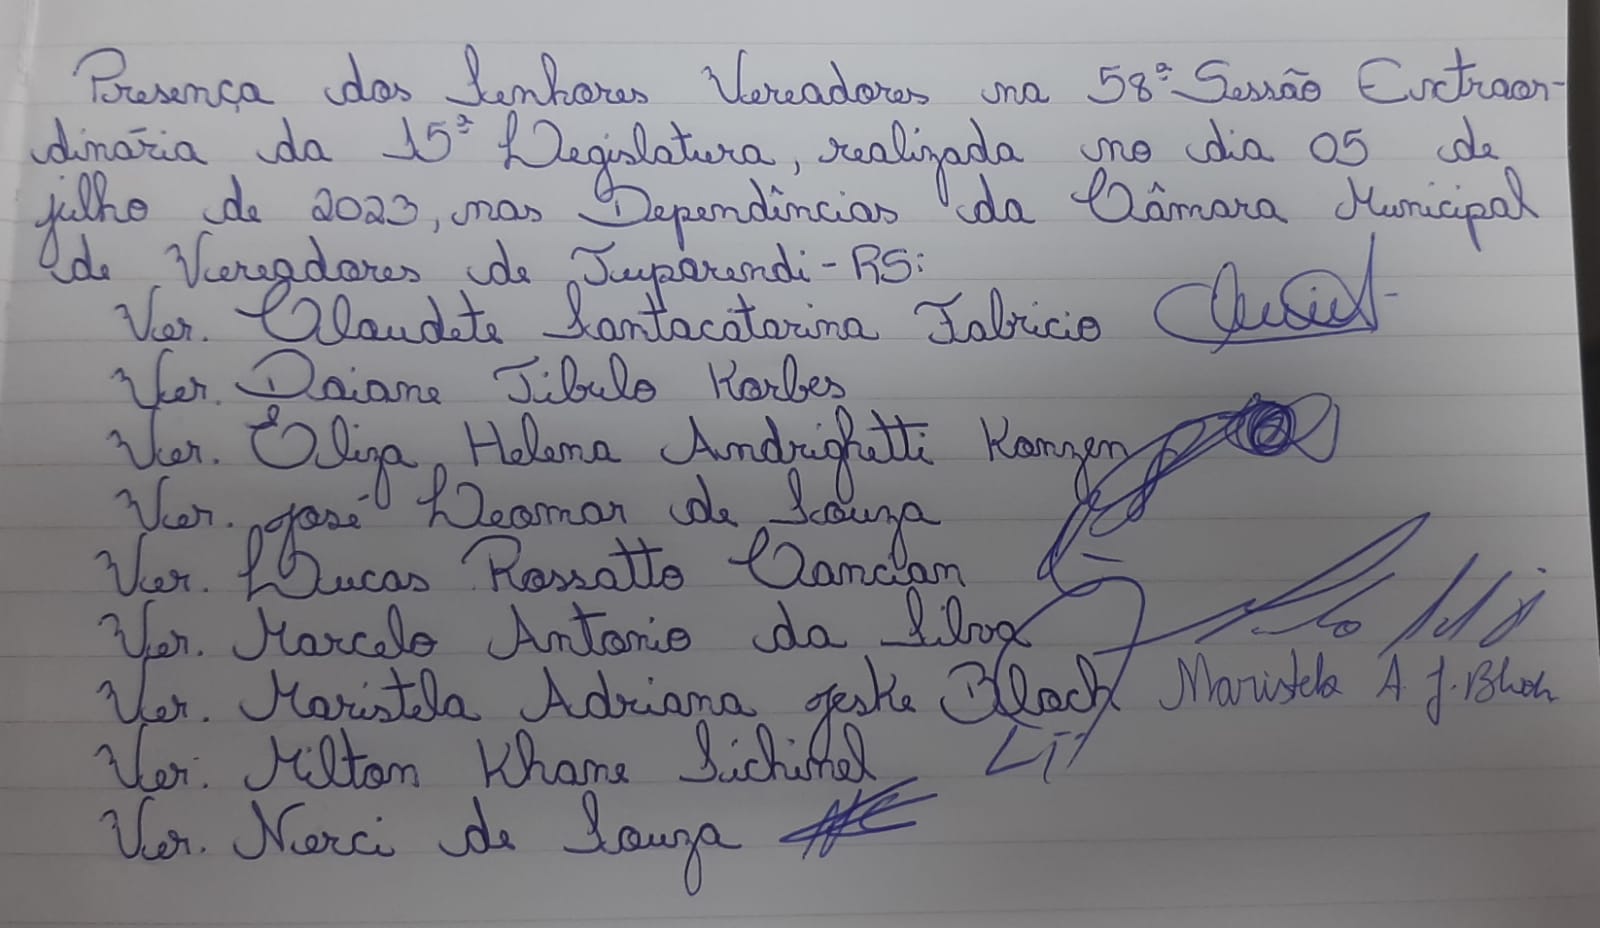 Presença dos Senhores Vereadores na 58ª Sessão Extraor-
dinária da 15ª Legislatura, realizada no dia 05 de
julho de 2023, nas Dependências da Câmara Municipal
de Vereadores de Tuparendi-RS:
Ver. Claudete Santacatarina Fabricio
Ver. Daiane Tibulo Korbes
Ver. Eliza Helena Andrighetti Konzen
Ver. José Leomar de Souza
Ver. Lucas Rossatto Cancian
Ver. Marcelo Antonio da Silva
Ver. Maristela Adriana Jeske Bloch Maristela A. J. Bloch
Ver. Milton Khane Sichinel
Ver. Nerci de Souza